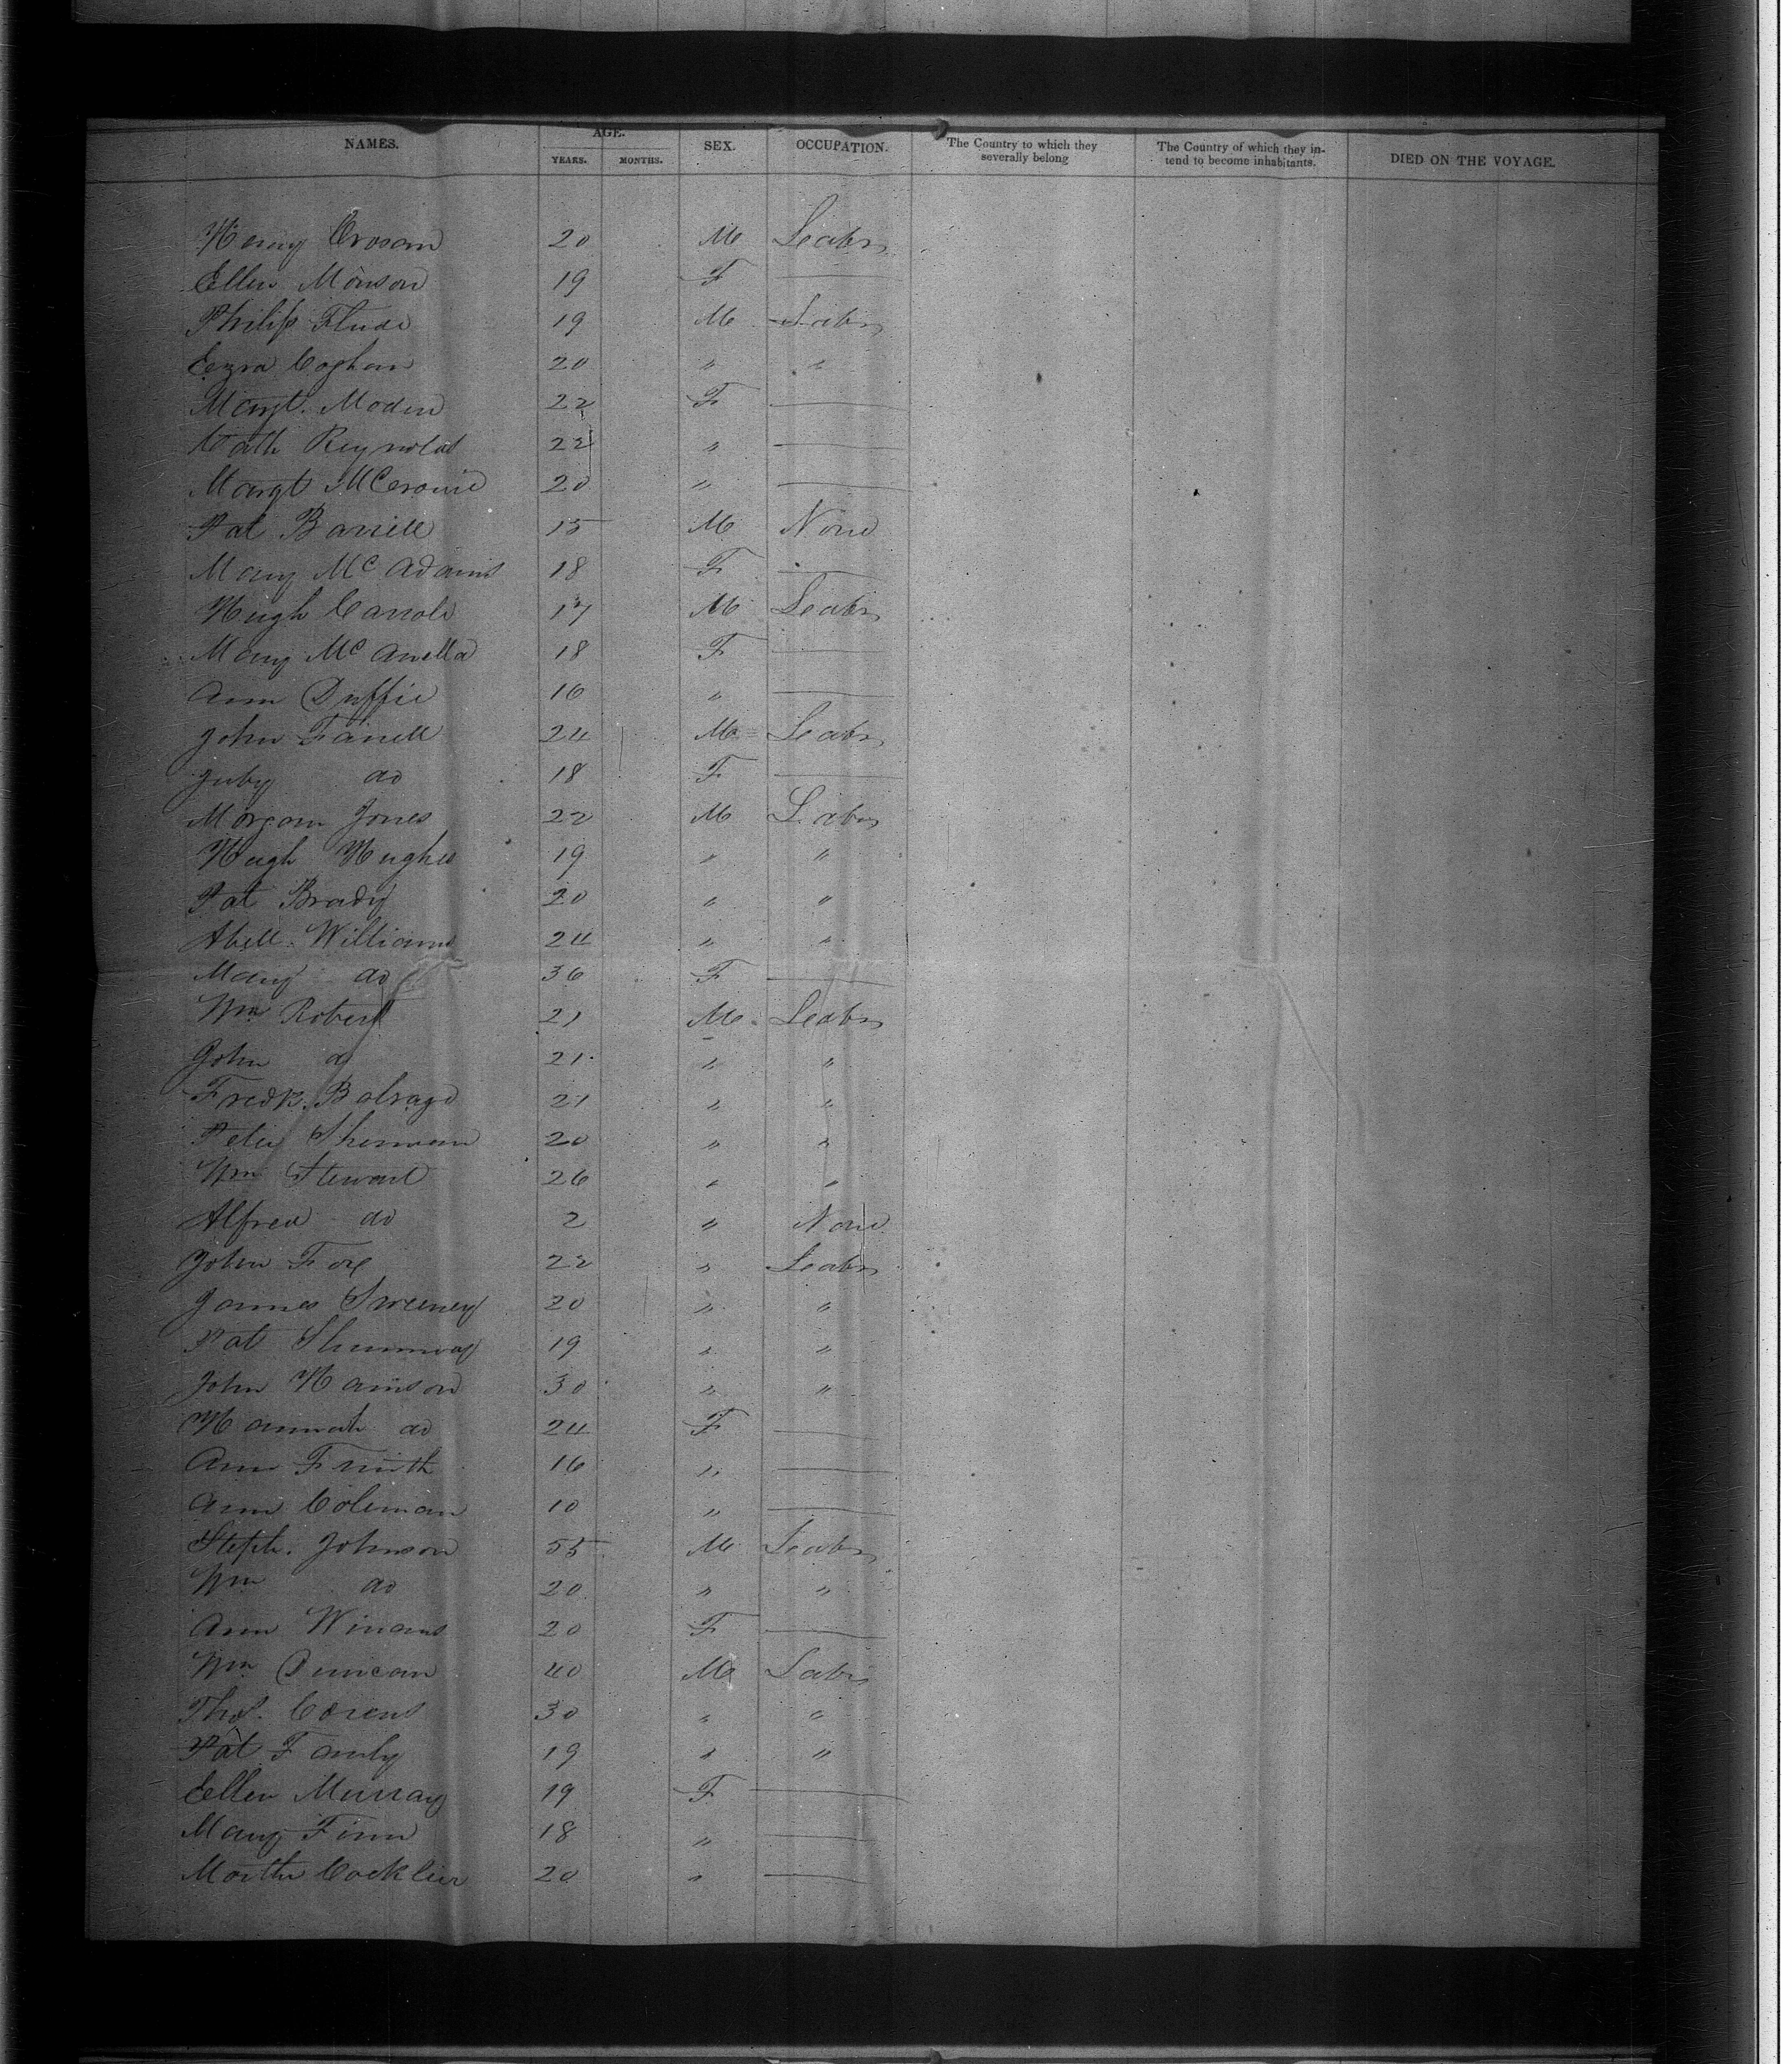 NAMES. AGE. SEX. OCCUPATION. The Country to which they severally belong The Country of which they intend to become inhabitants. DIED ON THE VOYAGE.
YEARS. MONTHS.
Henry 20 M Labr
Ellen Monson 19 F —
Philip Flude 19 M Labr
Ezra Coghan 20 " "
Margt. Moden 22 F —
Cath Reynolds 22 " —
Margt 20 " —
Pat Barrell 15 M None
Mary McAdams 18 F —
Hugh Carrole 17 M Labr
Mary McAnella 18 F —
Ann Duffie 16 " —
John Farrell 24 M Labr
Juby do 18 F —
Morgan Jones 22 M Labr
Hugh Hughes 19 " "
Pat Brady 20 " "
Abell. Williams 24 " "
Mary do 36 F —
Wm Robert 21 M Labr
John do 21 " "
Fredk. 21 " "
Peter 20 " "
Wm Stewart 26 " "
Alfred do 2 " None
John Fox 22 " Labr
James Sweeney 20 " "
Pat 19 " "
John Harrison 30 " "
Hannah do 24 F —
Ann 16 " —
Ann Coleman 10 " —
Steph. Johnson 55 M Labr
Wm do 20 " "
Ann Winans 20 F —
Wm Duncan 40 M Labr
Thos. 30 " "
Pat 19 " "
Ellen Murray 19 F —
Mary Finn 18 " —
Martha 20 " —